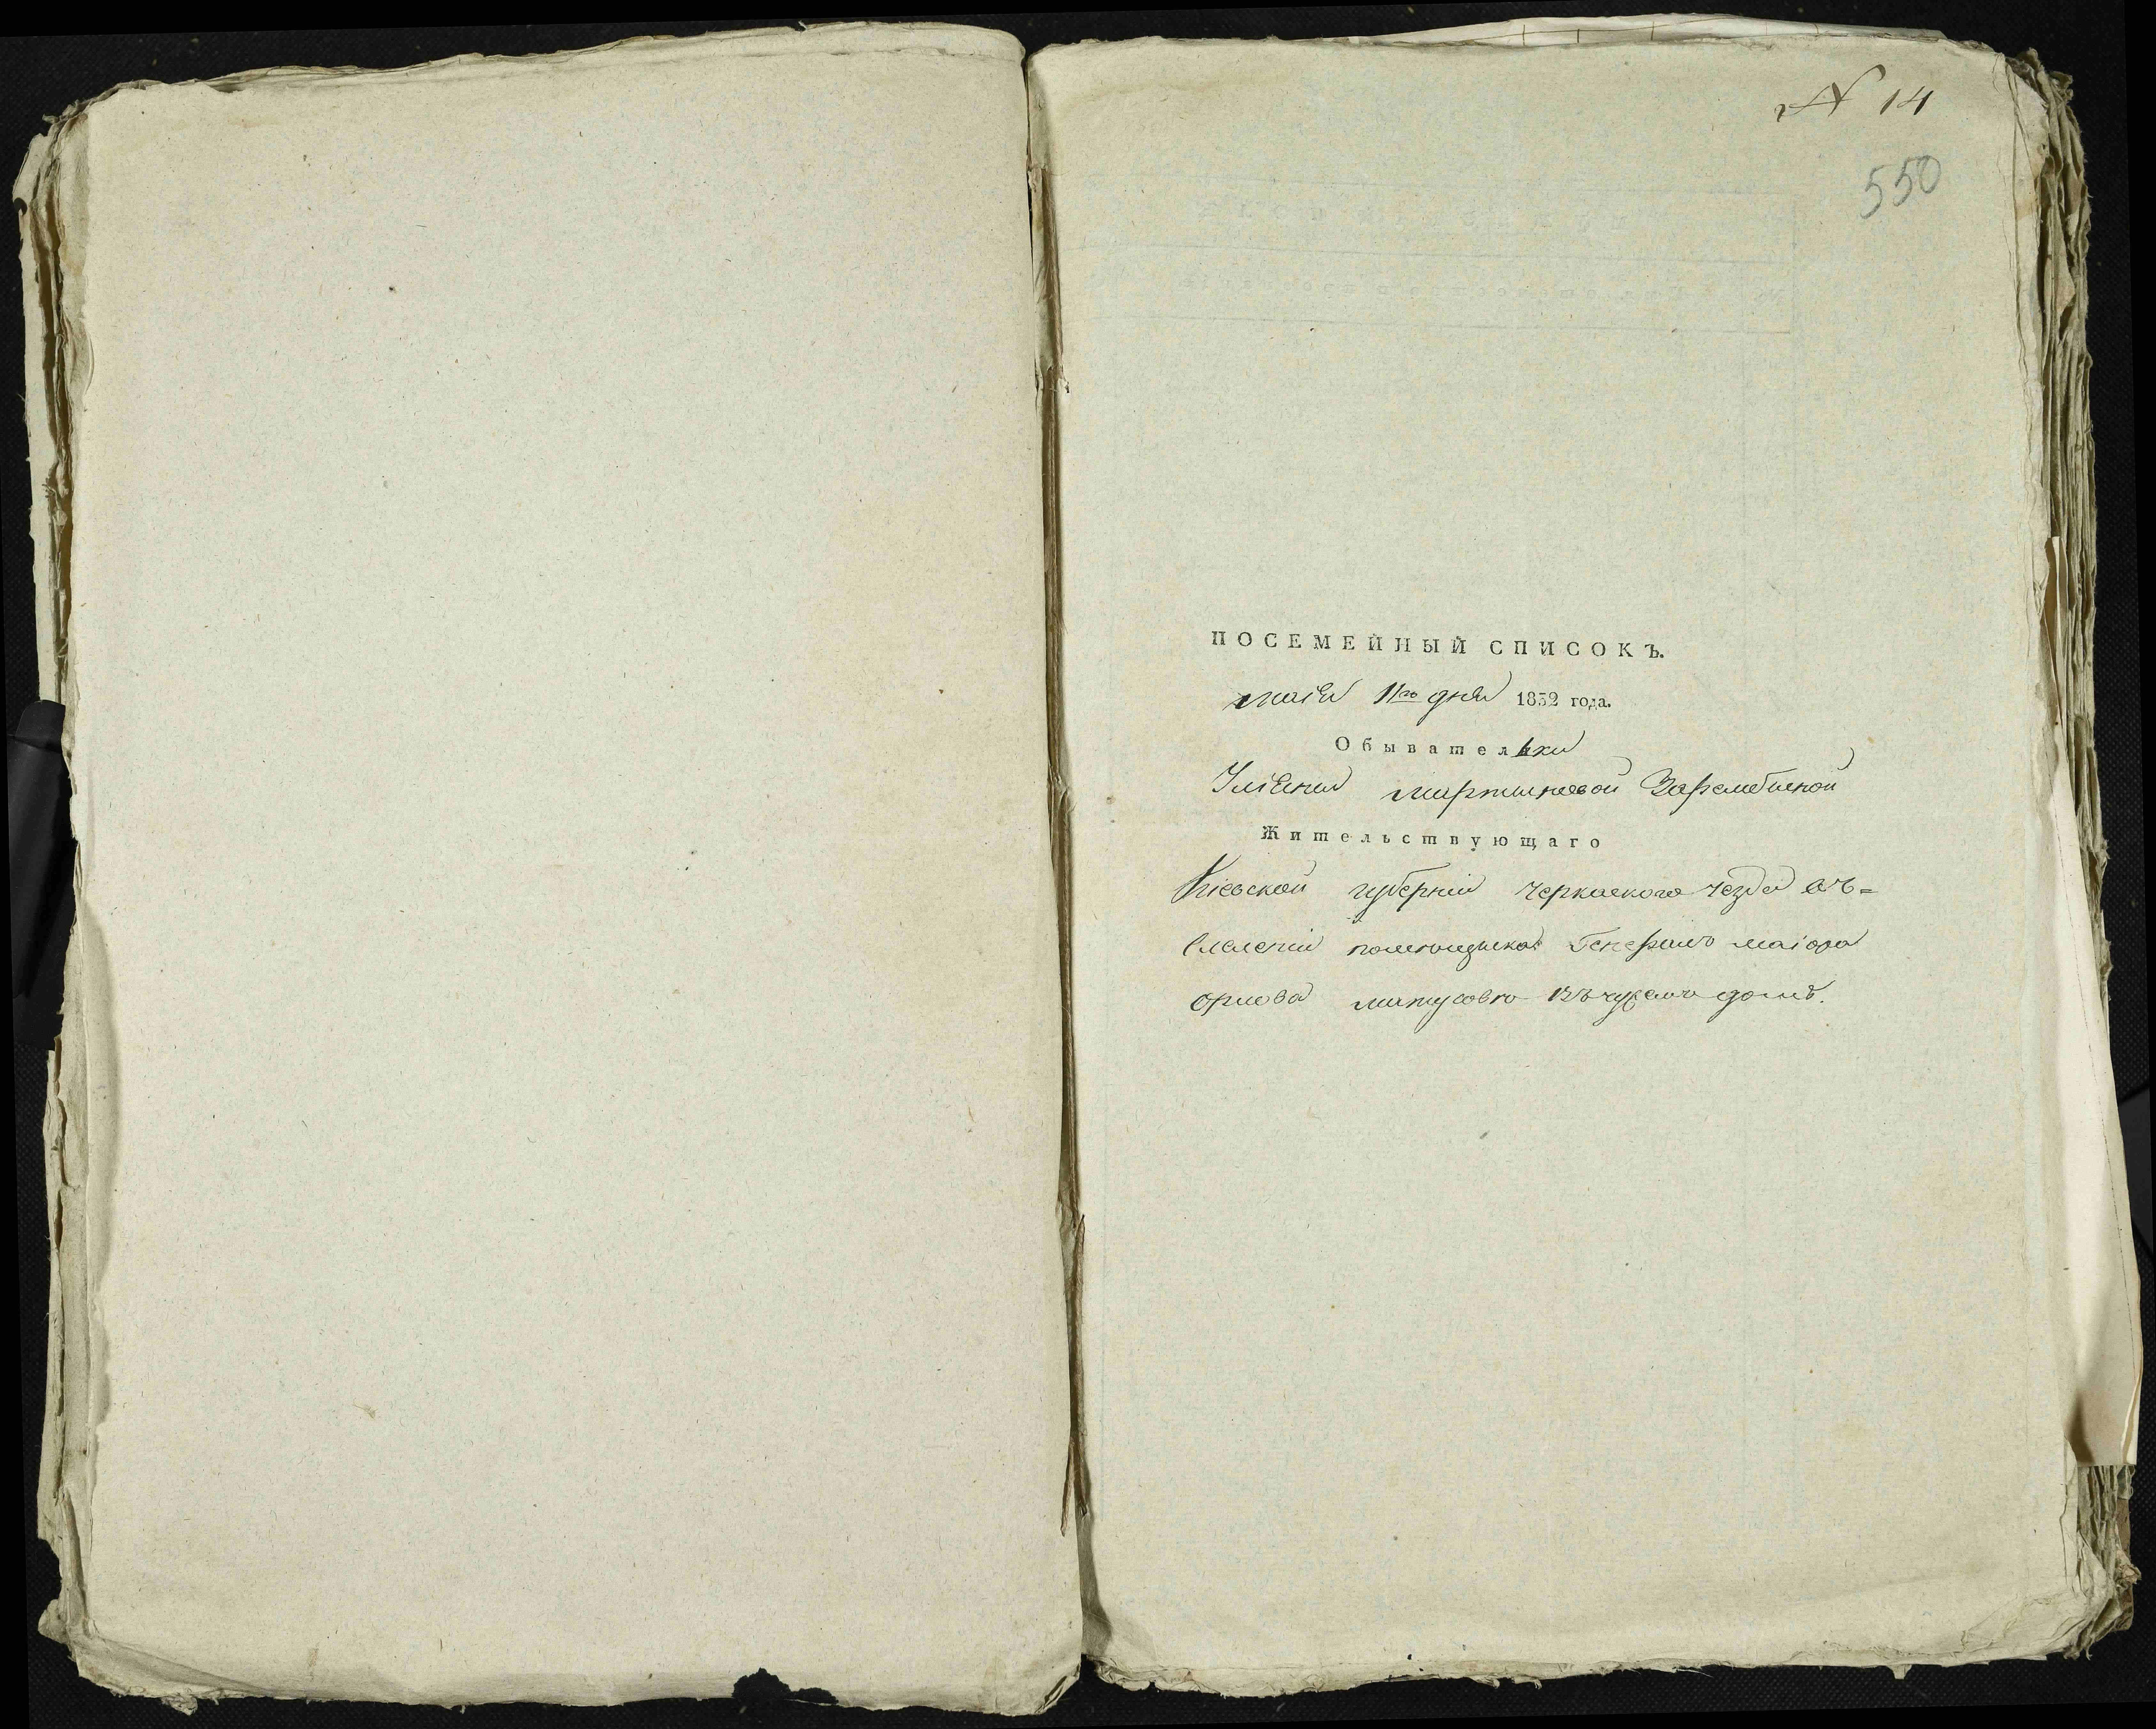 № 14
550
ПОСЕМЕЙНЫЙ СПИСОКЪ.
маія 11го дня 1832 года.
Обывательки
мартиновой Зарембиной
Жительствующаго
Кіевской губерніи черкаского уезда въ=
селеніи помещика Генералъ маіора
орлова въ чужемъ доме.